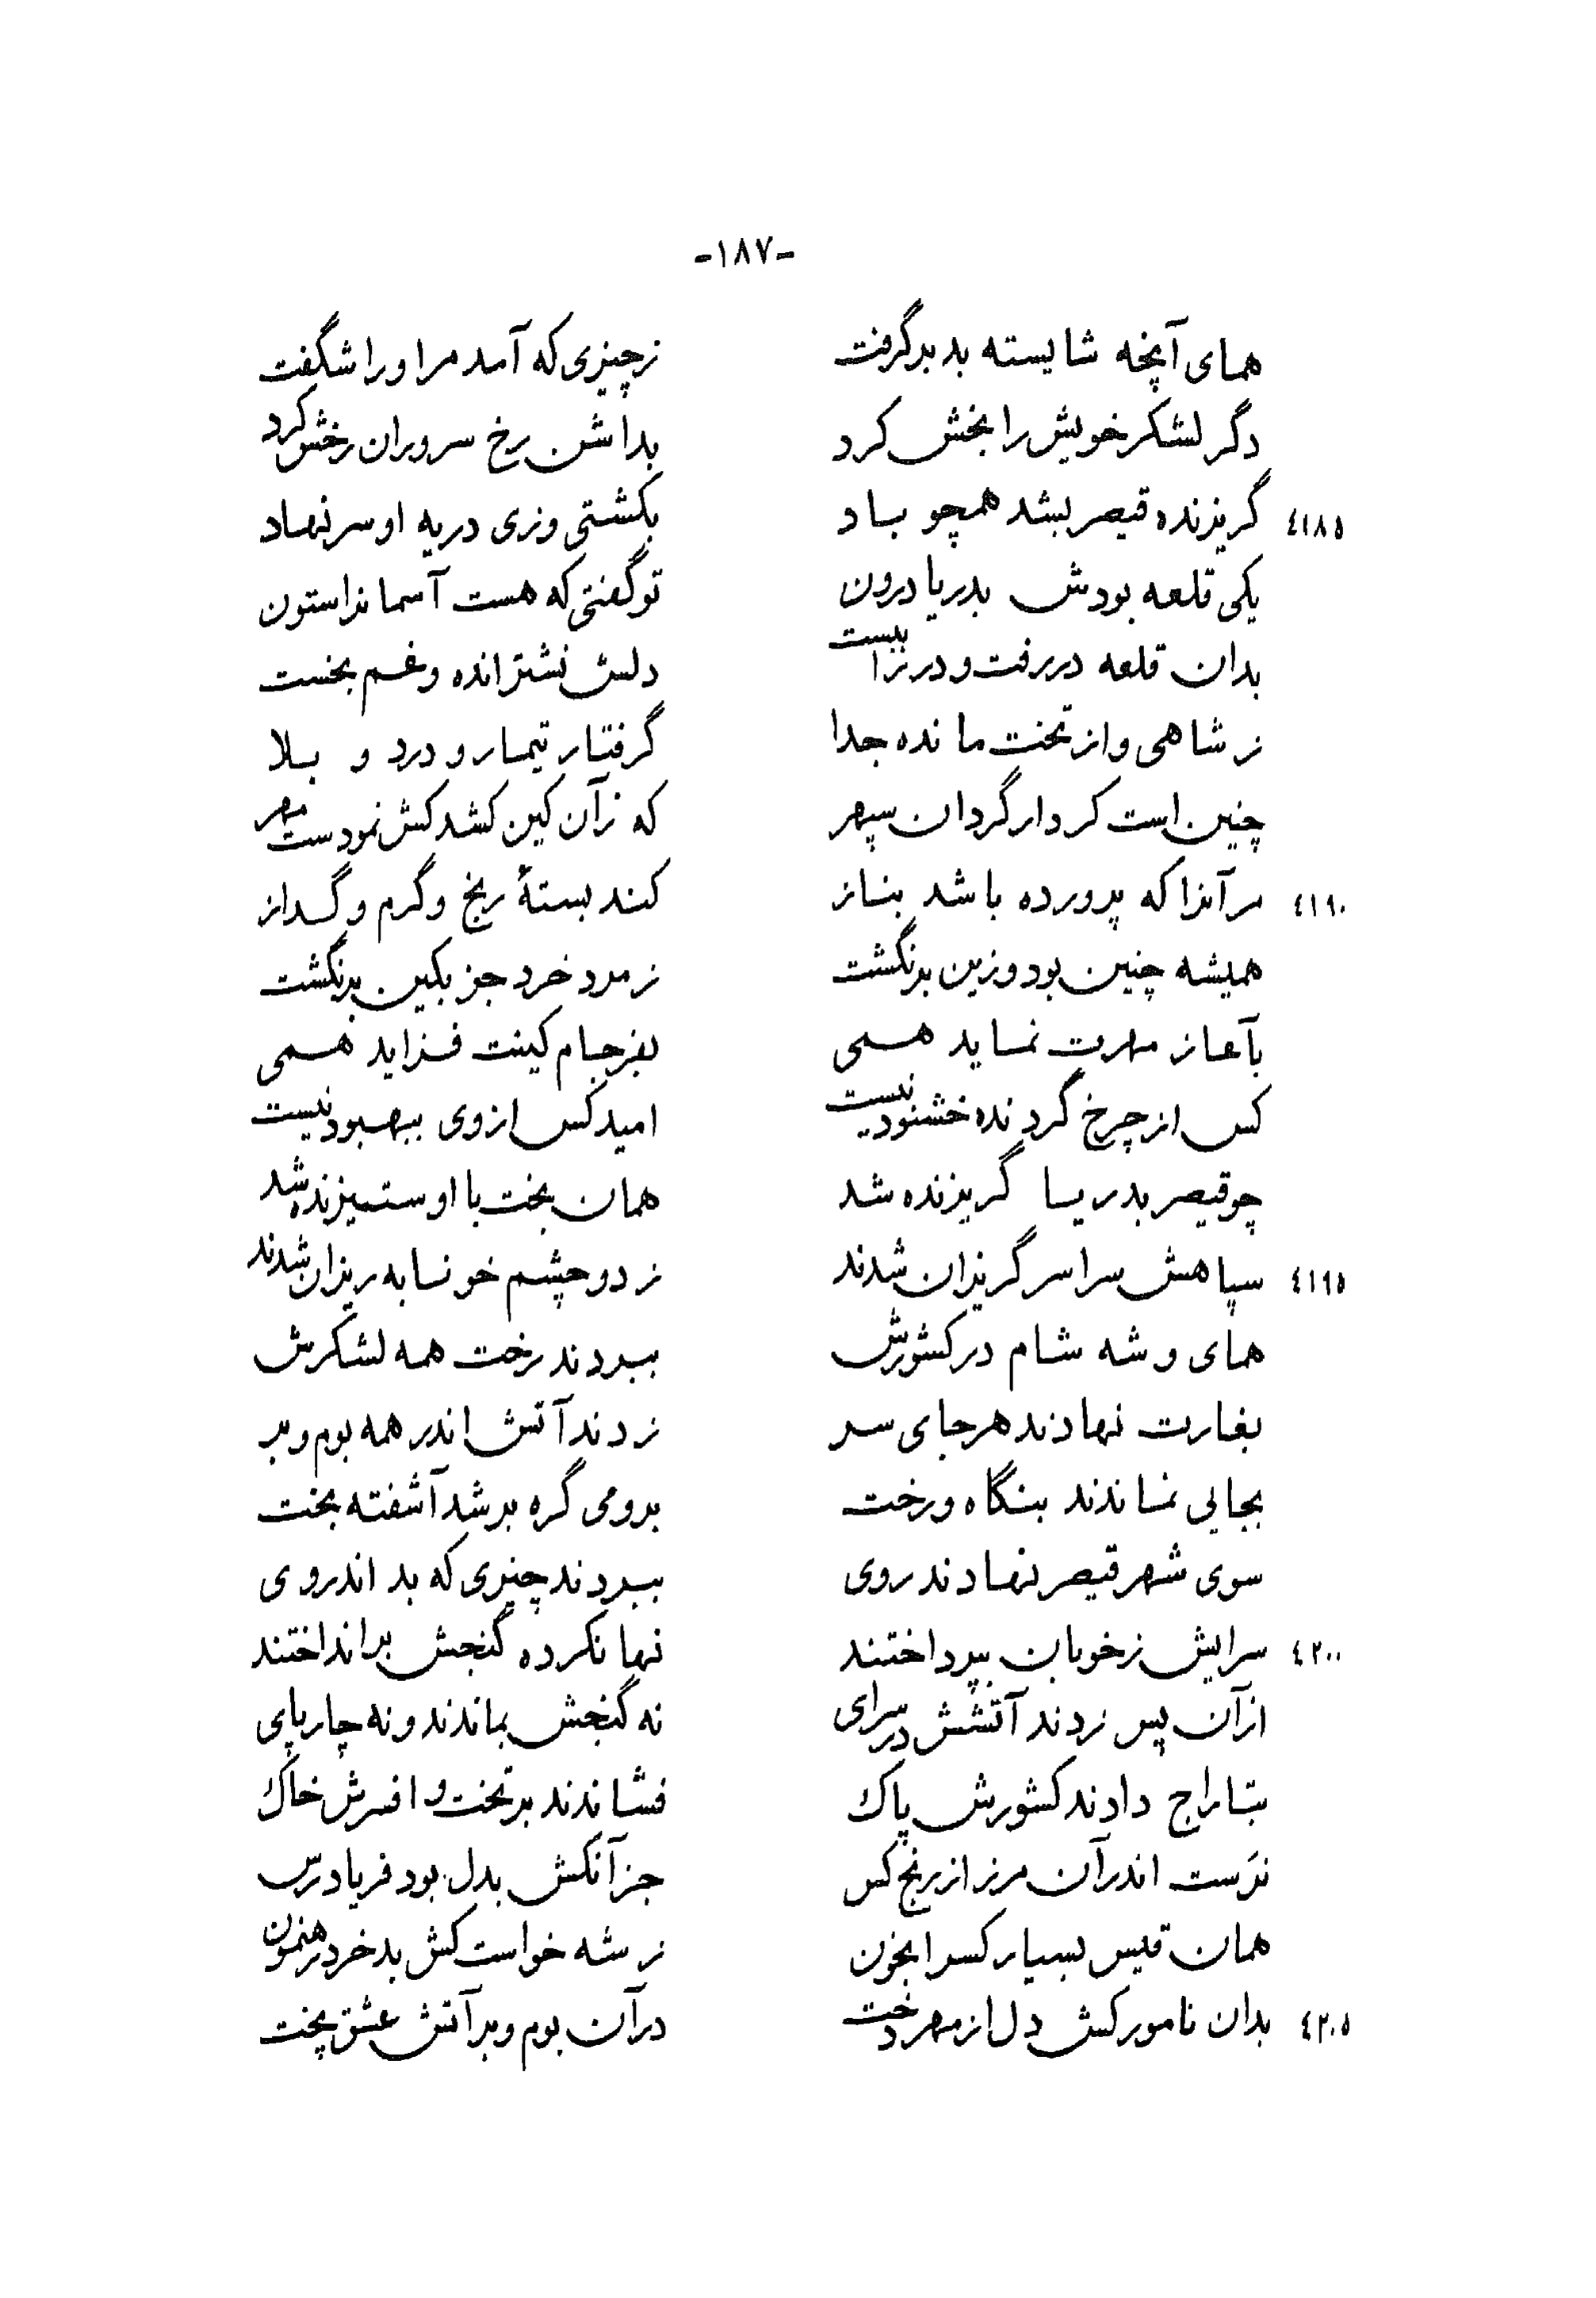 -۱۸۷-
همای آنچه شایسته بد برگرفت    زچیزی که آمد مر اورا شگفت
دگر لشکر خویش را بخش کرد    بداشن رخ سروران رخش کرد
٤۱۸٥ گریزنده قیصر بشد همچو باد    بکشتی وزی دریه او سر نهاد
یکی قلعه بودش بدریا درون    تو گفتی که هست آسمانرا ستون
بدان قلعه در رفت و در را ببست    دلش نشتر انده و غم بخست
ز شاهی و از تخت مانده جدا    گرفتار تیمار و درد و بلا
چنین است کردار گردان سپهر    که زآن کین کشد کش نمودست مهر
٤۱۹۰ مر آنرا که پرورده باشد بناز    کند بستهٔ رنج و گرم و گداز
همیشه چنین بود وزین برنگشت    ز مرد خرد جز بکین برنگشت
بآغاز مهرت نماید همی    بفرجام کینت فزاید همی
کس از چرخ گردنده خشنود نیست    امید کس از وی ببهبود نیست
چو قیصر بدریا گریزنده شد    همان بخت با او ستیزنده شد
٤۱۹٥ سپاهش سراسر گریزان شدند    ز دو چشم خونابه ریزان شدند
همای و شه شام در کشورش    ببردند رخت همه لشکرش
بغارت نهادند هر جای سر    زدند آتش اندر همه بوم و بر
بجایی نماندند بنگاه و رخت    برومی گره بر شد آشفته بخت
سوی شهر قیصر نهادند روی    ببردند چیزی که بد اندروی
٤۲۰۰ سرایش زخوبان بپرداختند    نهانکرده گنجش برانداختند
از آن پس زدند آتشش در سرای    نه گنجش بماندند و نه چارپای
بتاراج دادند کشورش پاک    فشاندند بر تخت و افسرش خاک
نرست اندر آن مرز از رنج کس    جز آنکش بدل بود فریادرس
همان قیس بسیار کس را بخون    ز شه خواست کش بد خرد رهنمون
٤۲۰٥ بدان نامور کش دل از مهر دخت    در آن بوم و بر آتش عشق پخت